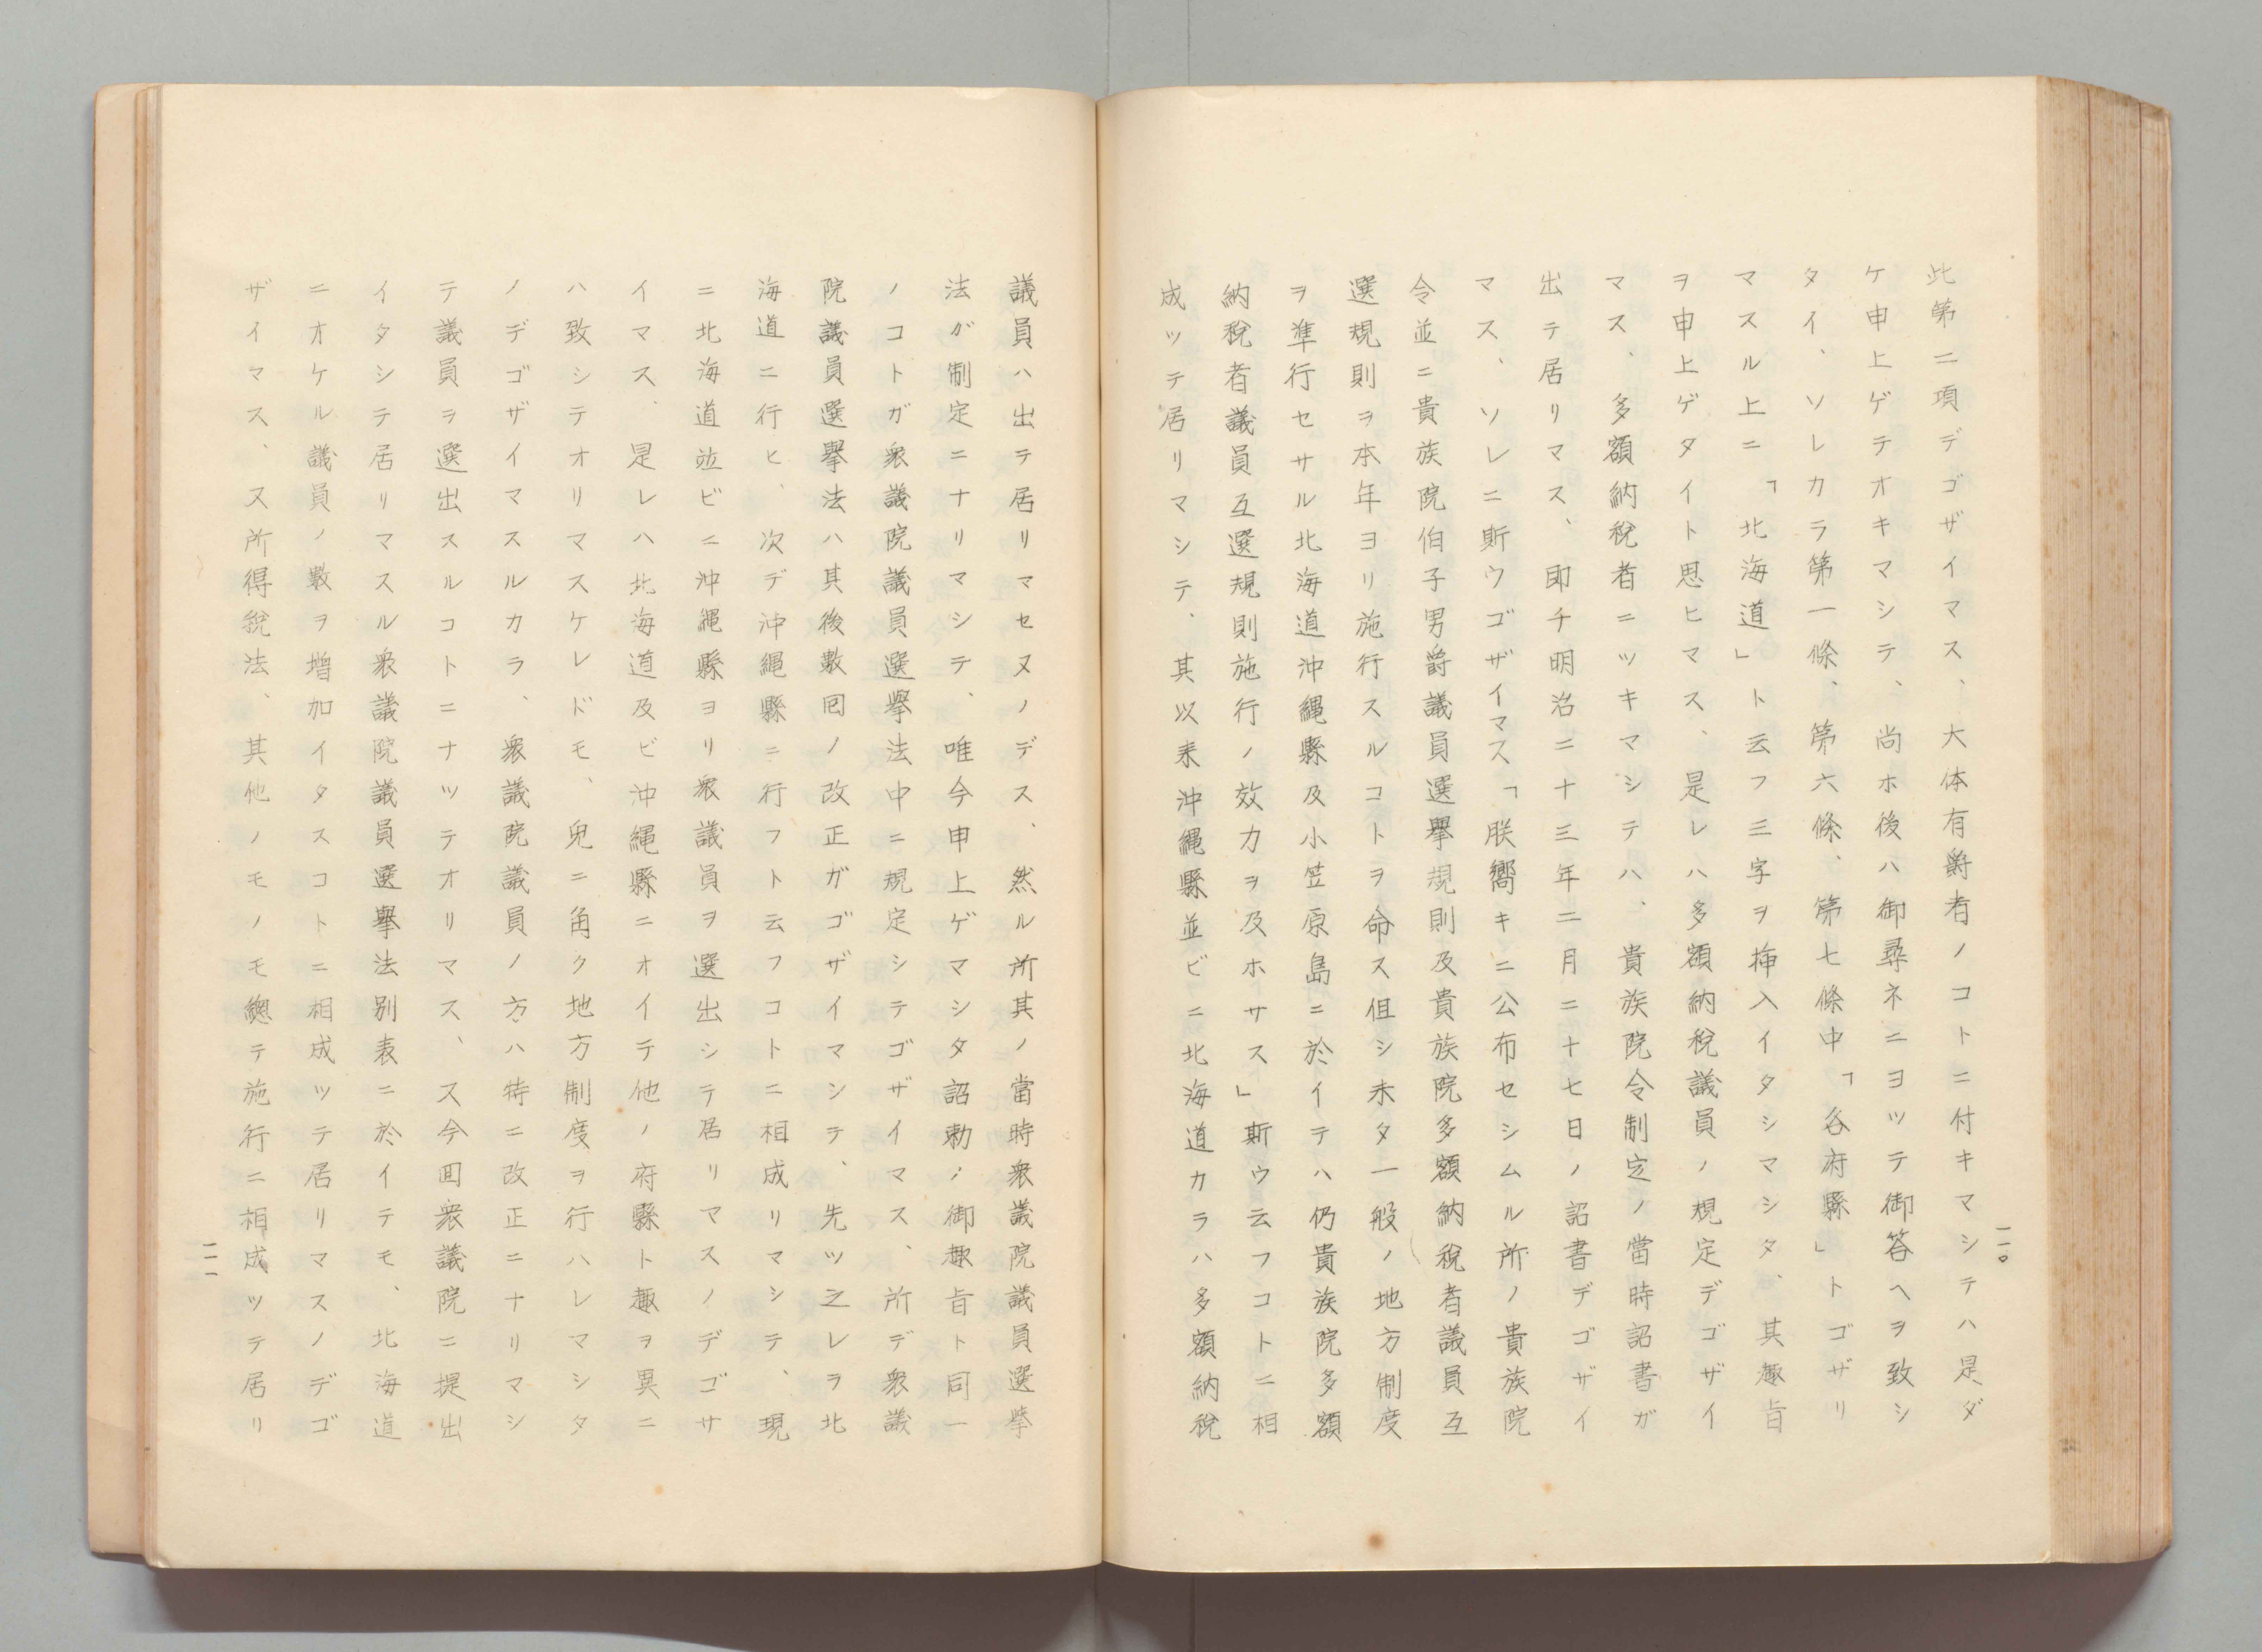 此第二項デゴザイマス、大体有爵者ノコトニ付キマシテハ是ダ
ケ申上ゲテオキマシテ、尚ホ後ハ御尋ネニヨツテ御答ヘヲ致シ
タイ、ソレカラ第一條、第六條、第七條中「各府縣」トゴザリ
マスル上ニ「北海道」ト云フ三字ヲ挿入イタシマシタ、其趣旨
ヲ申上ゲタイト思ヒマス、是レハ多額納税議員ノ規定デゴザイ
マス、多額納税者ニツキマシテハ、貴族院令制定ノ當時詔書ガ
出テ居リマス、即チ明治二十三年二月二十七日ノ詔書デゴザイ
マス、ソレニ斯ウゴザイマス「朕嚮キニ公布セシムル所ノ貴族院
令並ニ貴族院伯子男爵議員選擧規則及貴族院多額納税者議員互
選規則ヲ本年ヨリ施行スルコトヲ命ス但シ未タ一般ノ地方制度
ヲ準行セサル北海道沖縄縣及小笠原島ニ於イテハ仍貴族院多額
納税者議員互選規則施行ノ效力ヲ及ホサス」斯ウ云フコトニ相
成ツテ居リマシテ、其以来沖縄縣並ビニ北海道カラハ多額納税
一一〇
議員ハ出テ居リマセヌノデス、然ル所其ノ當時衆議院議員選擧
法ガ制定ニナリマシテ、唯今申上ゲマシタ詔勅ノ御趣旨ト同一
ノコトガ衆議院議員選擧法中ニ規定シテゴザイマス、所デ衆議
院議員選擧法ハ其後數回ノ改正ガゴザイマンテ、先ツ之レヲ北
海道ニ行ヒ、次デ沖縄縣ニ行フト云フコトニ相成リマシテ、現
ニ北海道竝ビニ沖縄縣ヨリ衆議員ヲ選出シテ居リマスノデゴサ
イマス、是レハ北海道及ビ沖縄縣ニオイテ他ノ府縣ト趣ヲ異ニ
ハ致シテオリマスケレドモ、兒ニ角ク地方制度ヲ行ハレマシタ
ノデゴザイマスルカラ、衆議院議員ノ方ハ特ニ改正ニナリマシ
テ議員ヲ選出スルコトニナツテオリマス、又今回衆議院ニ提出
イタシテ居リマスル衆議院議員選擧法別表ニ於イテモ、北海道
ニオケル議員ノ數ヲ増加イタスコトニ相成ツテ居リマスノデゴ
ザイマス、又所得税法、其他ノモノモ總テ施行ニ相成ツテ居リ
一一一